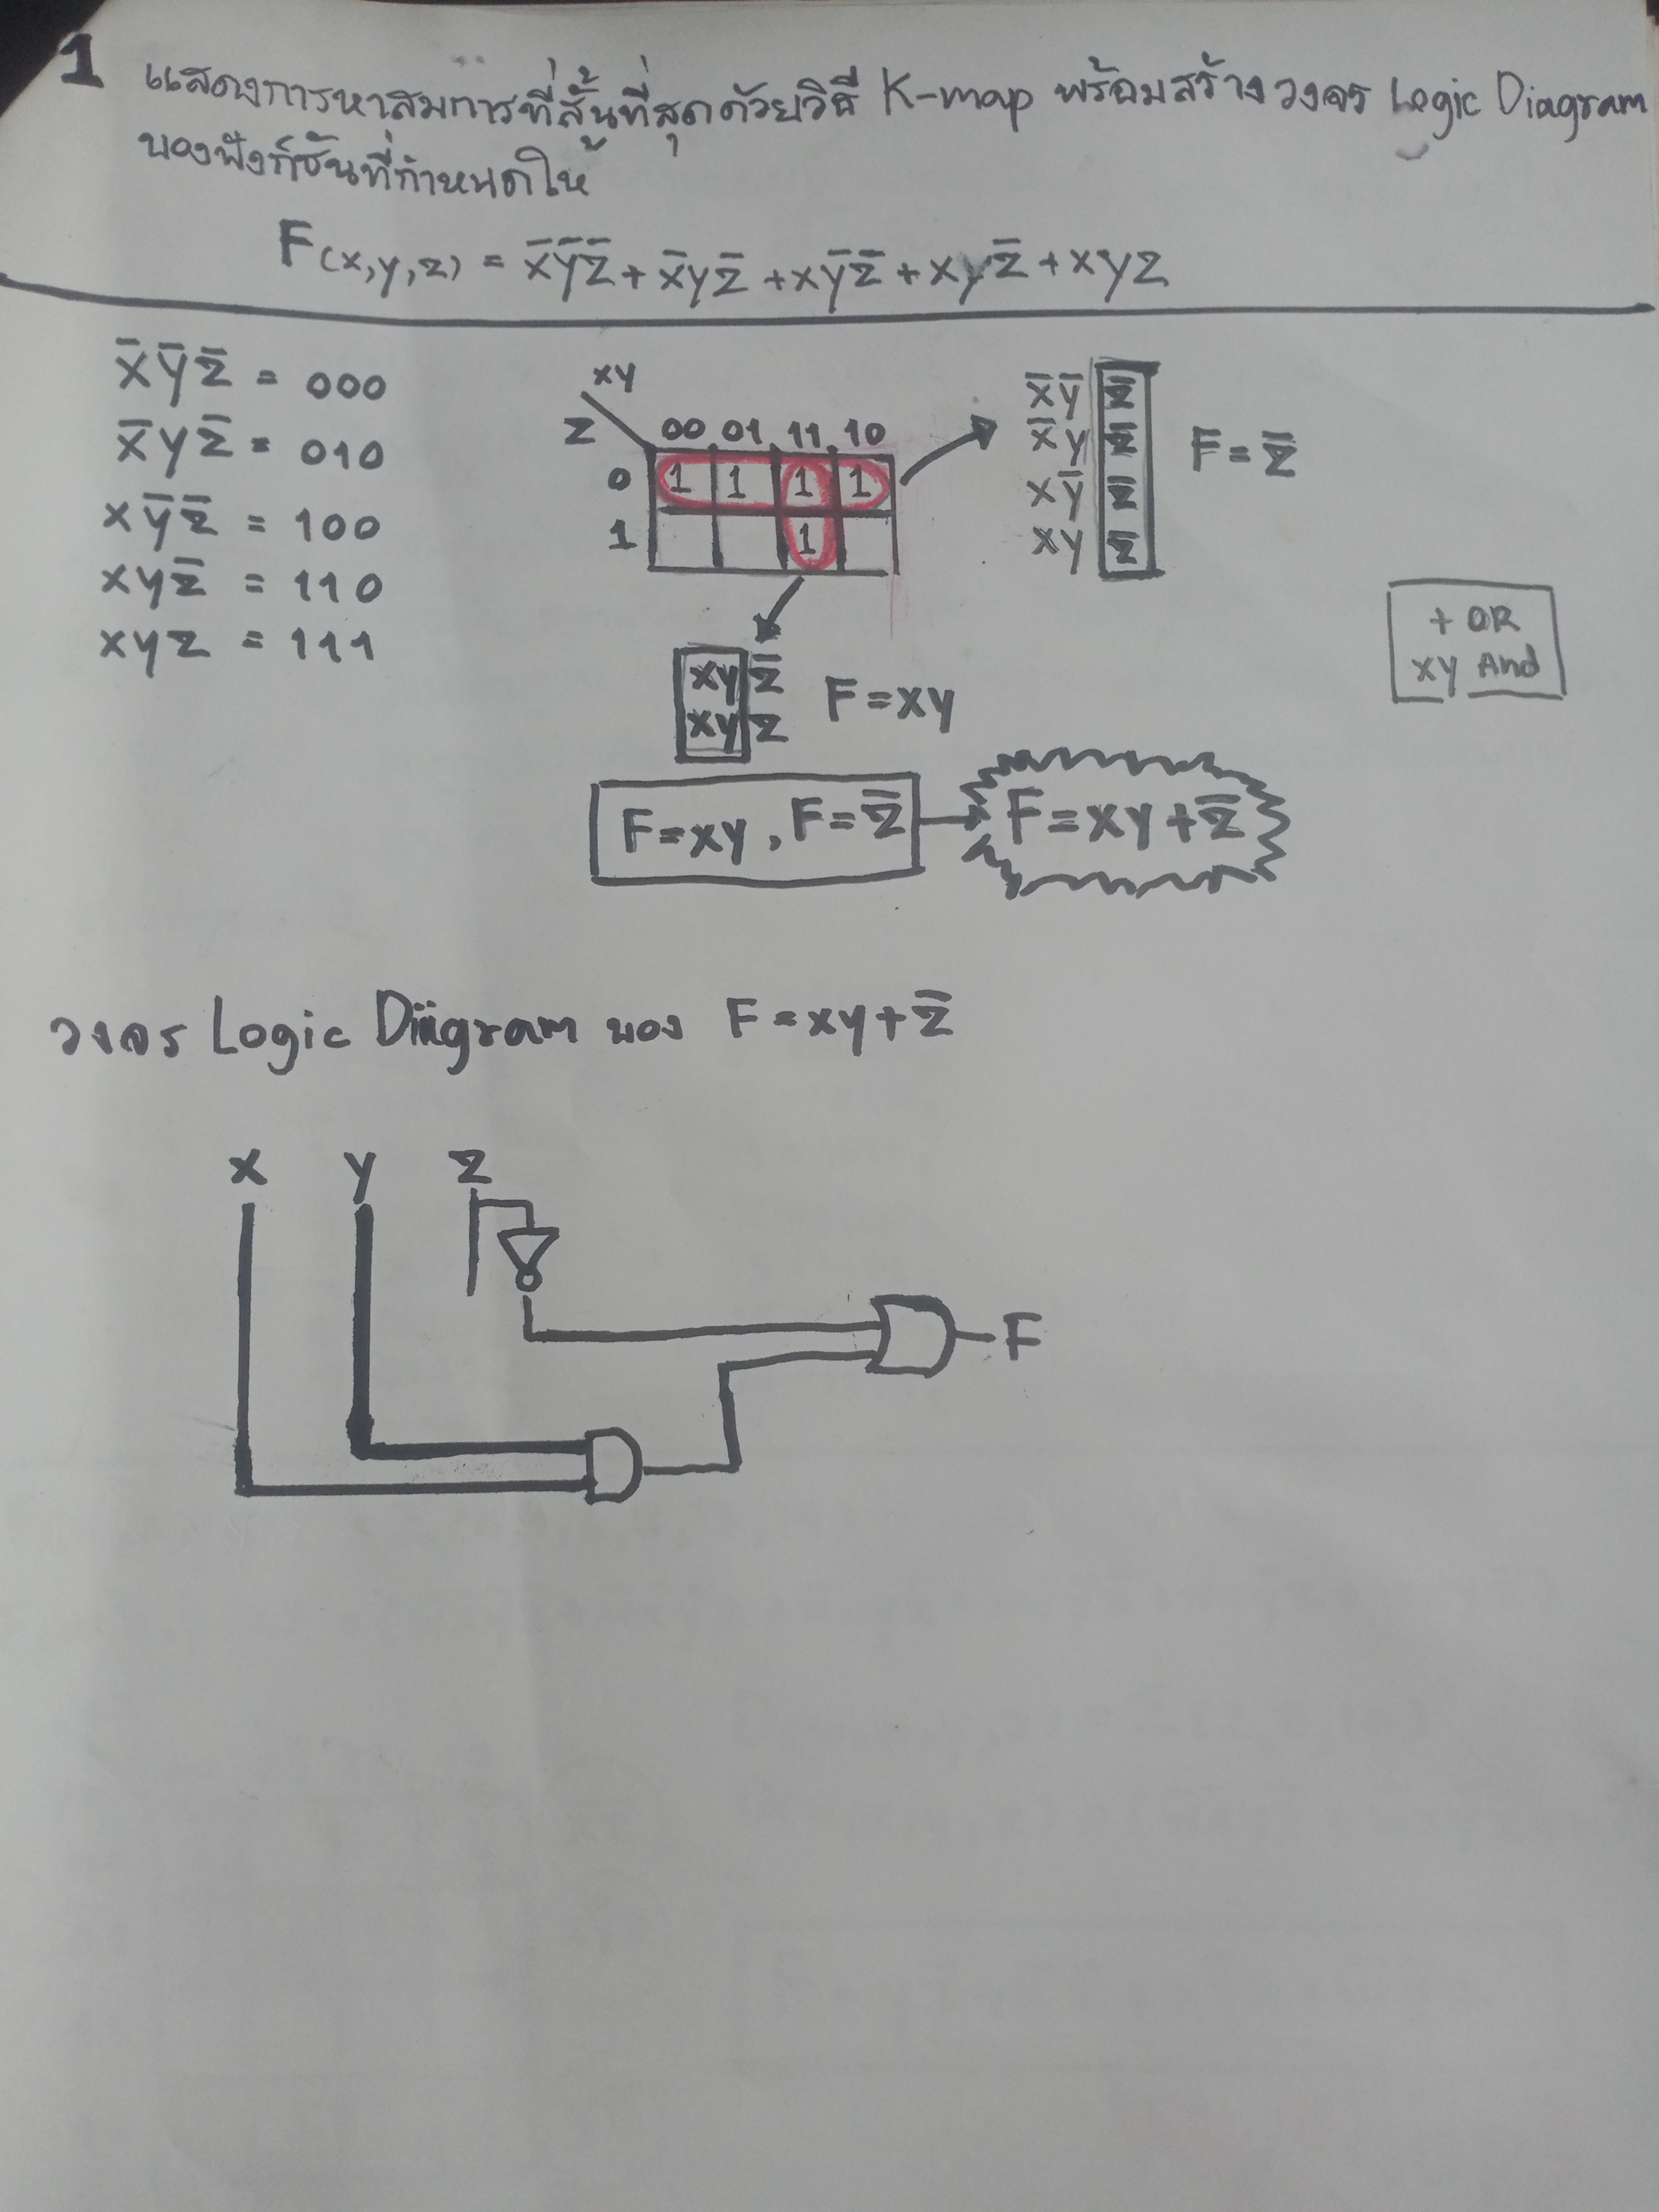 1 แสดงการหาสมการที่สั้นที่สุดด้วยวิธี K-map พร้อมสร้างวงจร Logic Diagram
ของฟังก์ชันที่กำหนดให้
F(x,y,z) = x̄ȳz̄ + x̄yz̄ + xȳz̄ + xyz̄ + xyz
x̄ȳz̄ = 000
x̄yz̄ = 010
xȳz̄ = 100
xyz̄ = 110
xyz = 111
xy
z 00 01 11 10
0 1 1 1 1
1 1
x̄ȳ z̄
x̄y z̄
xȳ z̄
xy z̄
F = z̄
xyz̄
xyz
F = xy
+ OR
xy And
F = xy , F = z̄
F = xy + z̄
วงจร Logic Diagram ของ F = xy + z̄
x y z
F